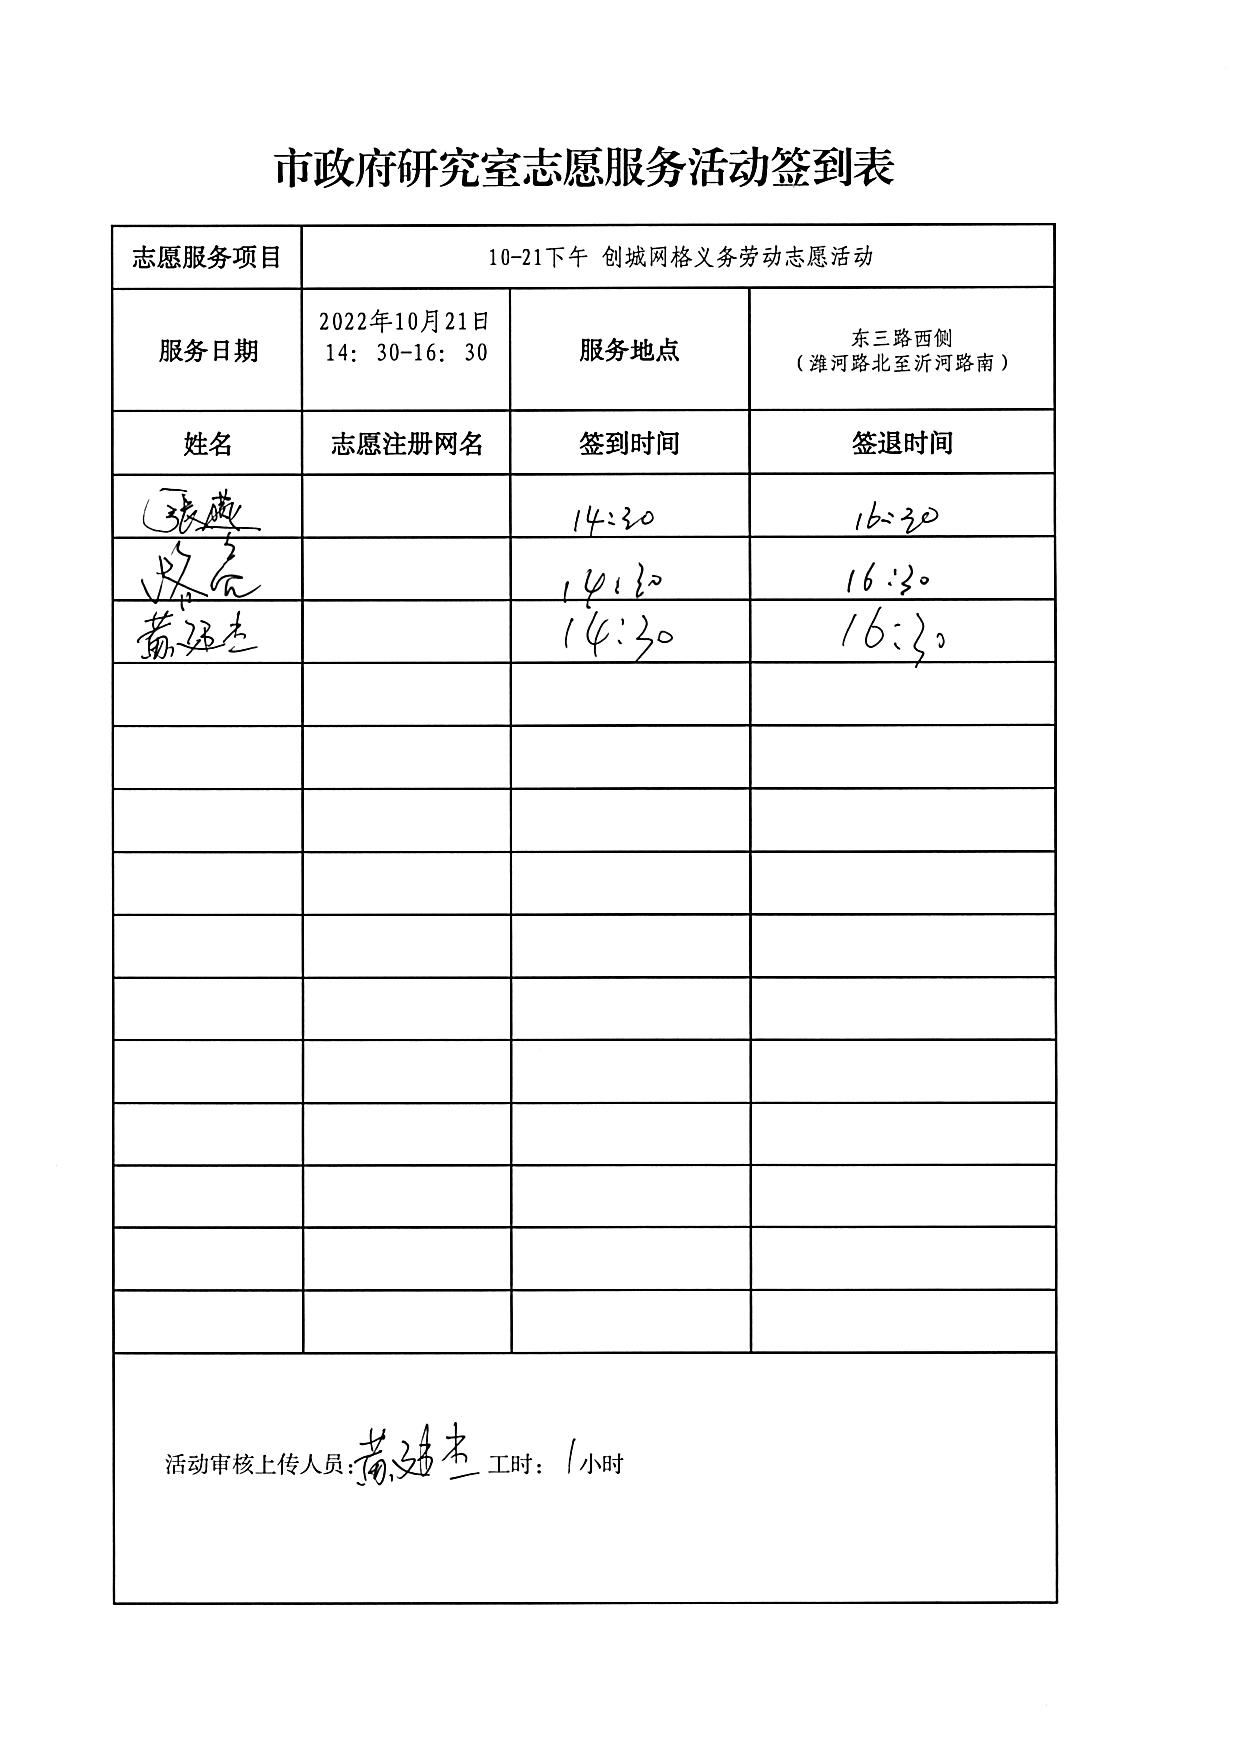 市政府研究室志愿服务活动签到表
志愿服务项目 10-21下午 创城网格义务劳动志愿活动
服务日期 2022年10月21日 14：30-16：30 服务地点 东三路西侧 （潍河路北至沂河路南）
姓名 志愿注册网名 签到时间 签退时间
张燕 14:30 16:30
14:30 16:30
黄廷杰 14:30 16:30
活动审核上传人员:黄廷杰 工时: 1小时